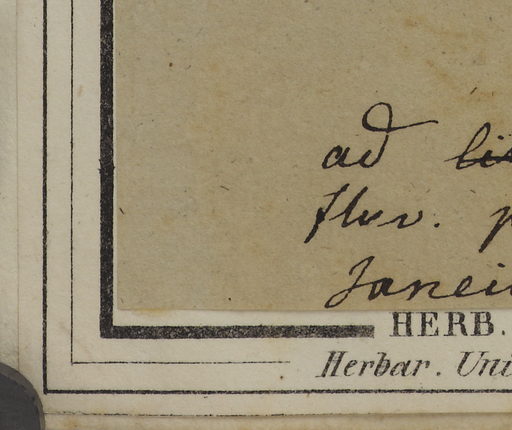 ad
fluv.
Janei
HERB.
Herbar. Uni